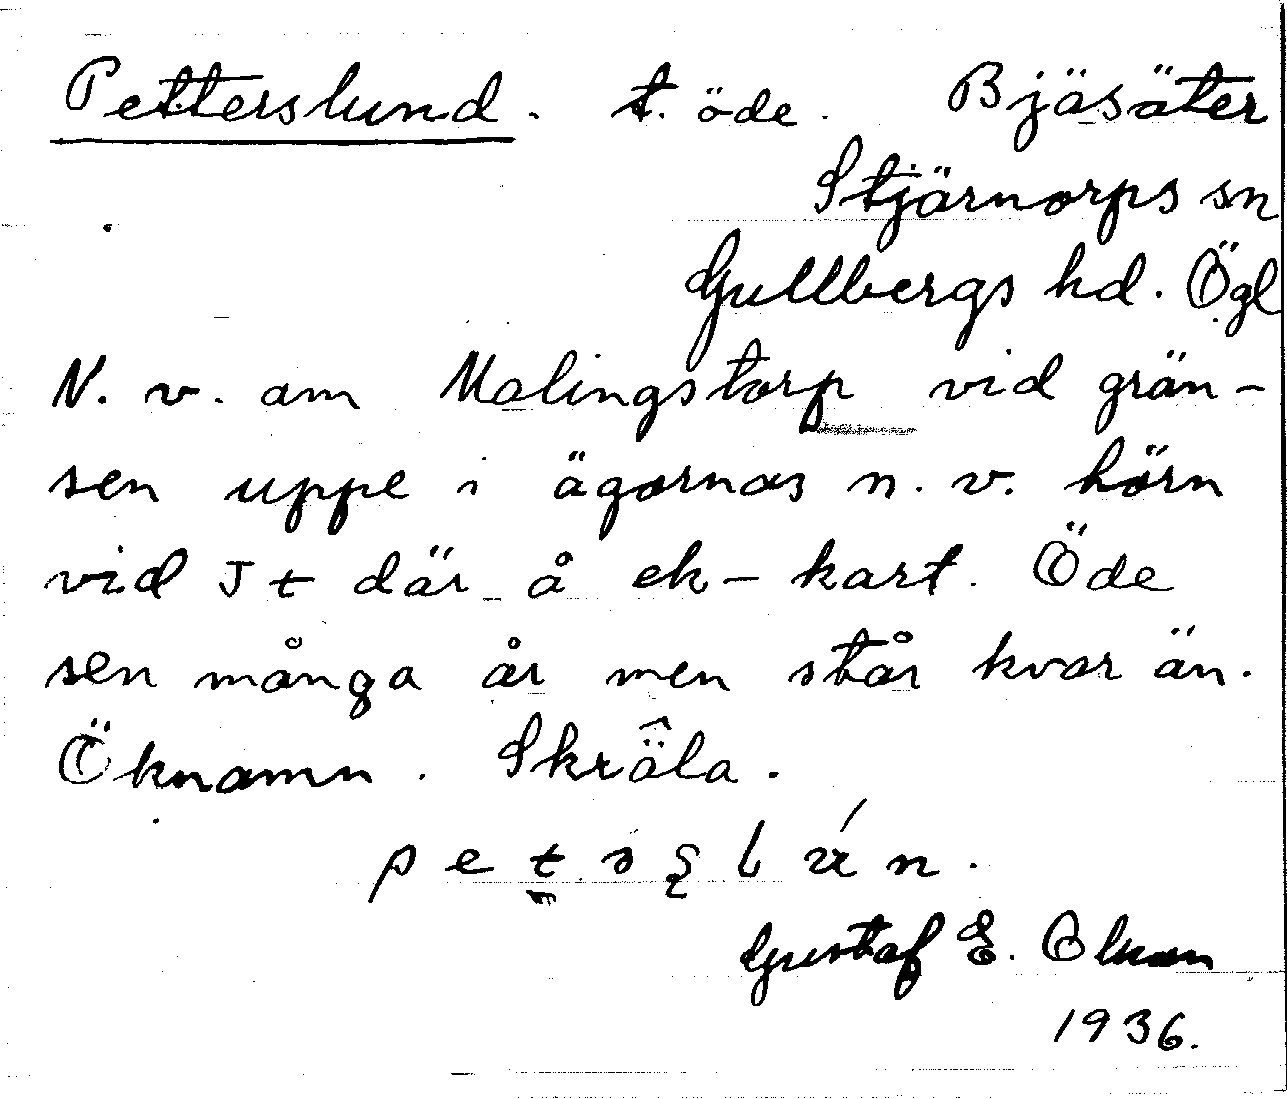 Petterslund. t. öde. Bjäsäter
Stjärnorps sn
Gullbergs hd. Ögl
N. v. om Malingstorp vid grän-
sen uppe i ägornas n. v. hörn
vid Jt där å ek-kart. Öde
sen många år men står kvar än.
Öknamn. Skräla.
Gustaf E. Olsson
1936.